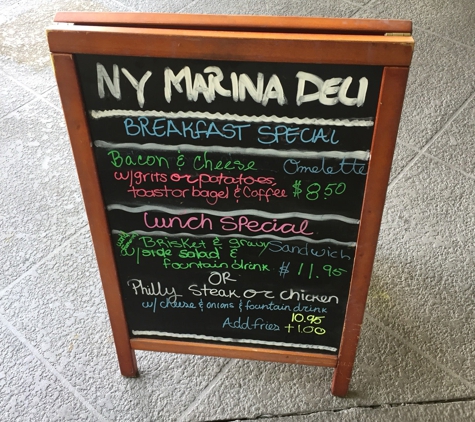 NY MARINA DELI
BREAKFAST SPECIAL
Bacon & Cheese Omelette
w/grits or potatoes,
toast or bagel & Coffee $8.50
Lunch Special
Brisket & gravy Sandwich
w/side salad &
fountain drink $11.95
OR
Philly Steak or chicken
w/ cheese & onions & fountain drink
10.95
Add fries +1.00